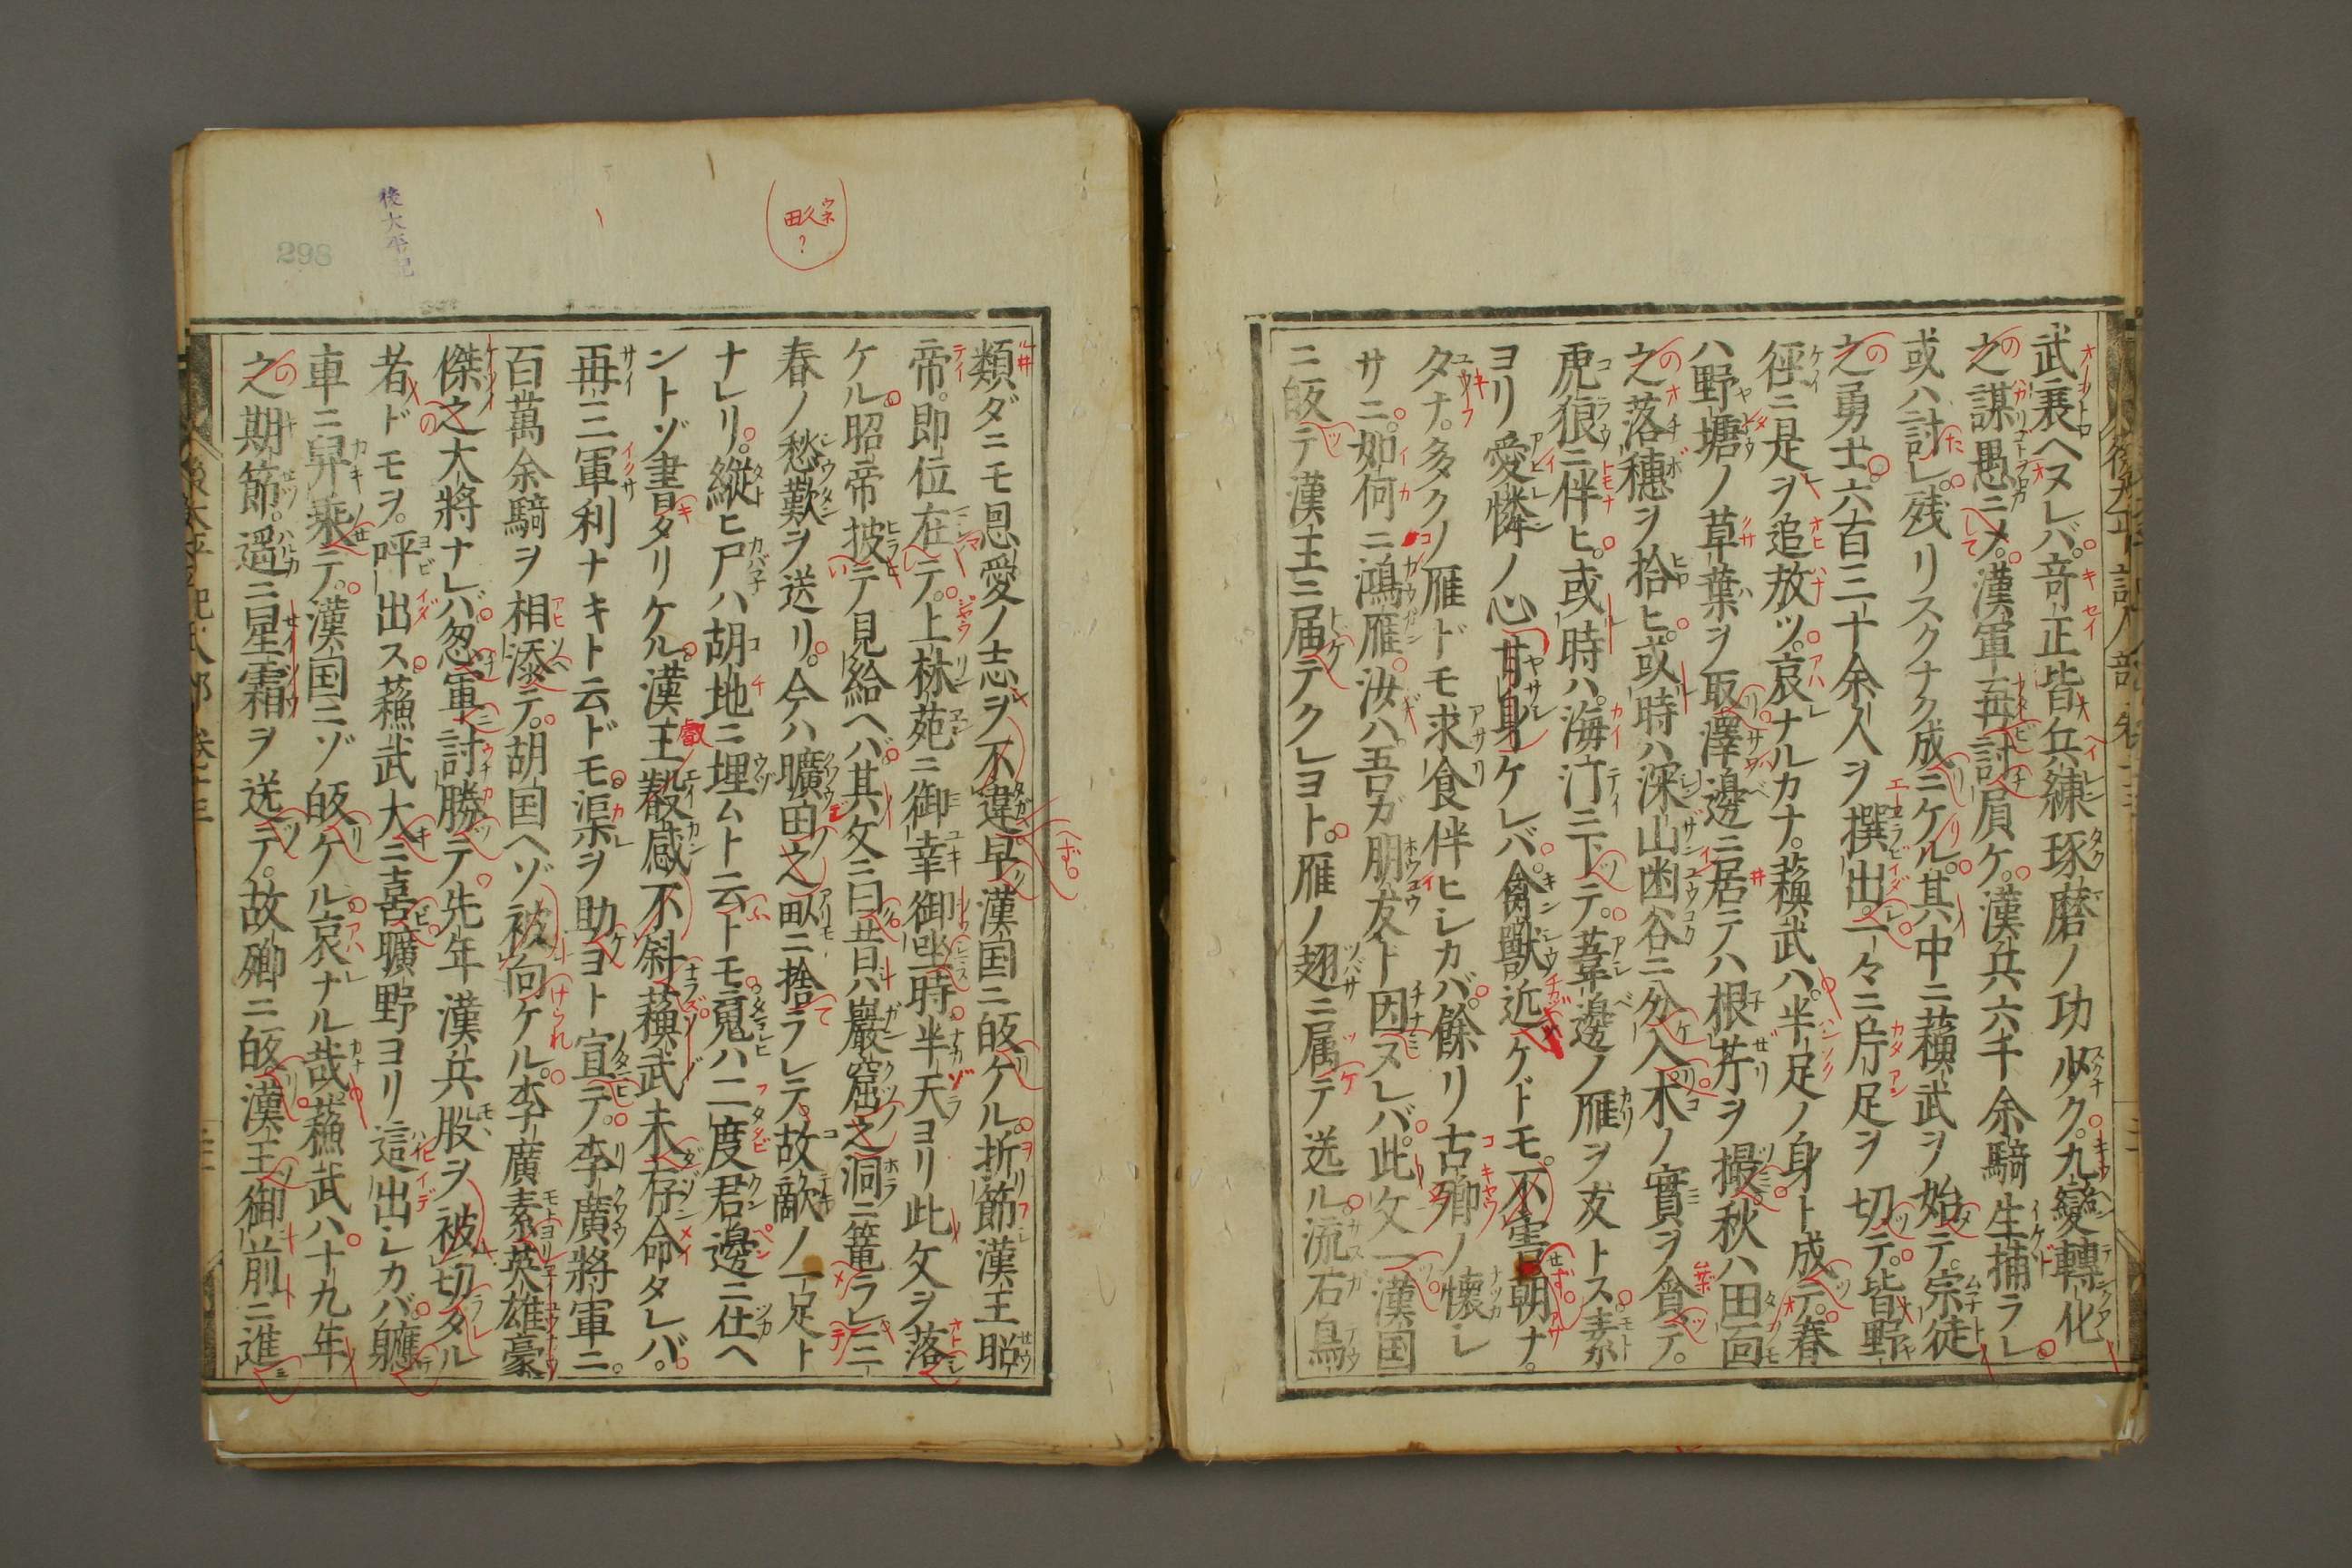 武衰ヘヌレバ。奇正皆兵練琢磨ノ功少ク。九變轉化
之謀愚ニメ。漢軍再討負ケ。漢兵六千余騎生捕ラレ
或ハ討レ残リスクナク成ニケル。其中ニ蘓武ヲ始テ。宗徒
之勇士。六百三十余人ヲ撰出。一々ニ片足ヲ切テ。皆野
径ニ是ヲ追放ツ。哀ナルカナ。蘓武ハ。半足ノ身ト成テ。春
ハ野塘ノ草葉ヲ取澤邊ニ居テハ根芹ヲ撮。秋ハ田面
之落穂ヲ拾ヒ。或時ハ深山幽谷ニ分入。木ノ實ヲ貪テ。
虎狼ニ伴ヒ。或時ハ。海汀ニ下テ。葦邊ノ雁ヲ友トス。素
ヨリ愛憐ノ心甘身ケレバ。禽獣近ケドモ。不害。朝ナ。
夕ナ。多クノ雁ドモ求食伴ヒシカバ。餘リ古郷ノ懐シ
サニ。如何ニ鴻雁。汝ハ。吾ガ朋友ト因ヌレバ。此文一漢国
ニ皈テ漢王ニ届テクレヨト。雁ノ翅ニ属テ送ル。流石鳥
後太平記
298
畝 ウネ
?
類ダニモ恩愛ノ志ヲ不違早漢国ニ皈ケル。折節漢王昭
帝。即位在テ。上林苑ニ御幸御坐時。半天ヨリ此文ヲ落
ケル。昭帝披テ見給ヘハ。其文ニ曰。昔ハ巖窟之洞ニ篭ラレ三
春ノ愁歎ヲ送リ。今ハ曠田之畝ニ捨ラレテ。故敵ノ一足ト
ナレリ。縦ヒ尸ハ胡地ニ埋ムト云トモ。䰟ハ二度君邊ニ仕ヘ
ントゾ書タリケル。漢王叡感不斜。蘓武未存命タレバ。
再三軍利ナキト云ドモ。渠ヲ助ヨト宣テ。李廣將軍ニ。
百萬余騎ヲ相添テ。胡国ヘゾ被向ケル。李廣素英雄豪
傑之大將ナレバ。忽軍討勝テ。先年漢兵股ヲ被切タル
者ドモヲ。呼出ス。蘓武大ニ喜。曠野ヨリ這出シカバ。軈
車ニ舁乗テ。漢国ニゾ皈ケル。哀ナル哉。蘓武ハ十九年
之期節。遥ニ星霜ヲ送テ。故郷ニ皈。漢王御前ニ進